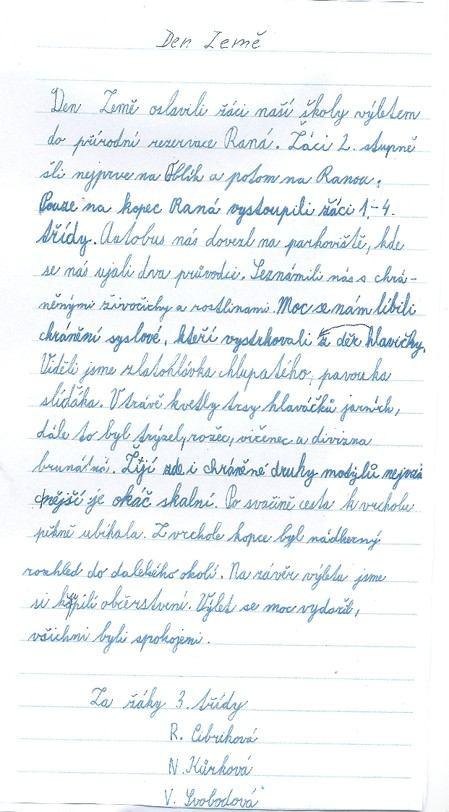 Den Země
Den Země oslavili žáci naší školy výletem
do přírodní rezervace Raná. Žáci 2. stupně
šli nejprve na Oblík a potom na Ranou.
Pouze na kopec Raná vystoupili žáci 1.-4.
třídy. Autobus nás dovezl na parkoviště, kde
se nás ujali dva průvodci. Seznámili nás s chrá-
něnými živočichy a rostlinami. Moc se nám líbili
chránění syslové, kteří vystrkovali z děr hlavičky.
Viděli jsme zlatohlávka chlupatého, pavouka
slíďáka. V trávě kvetly trsy hlaváčků jarních,
dále to byl trýzel, rožec, vičenec a divizna
brunátná. Žijí zde i chráněné druhy motýlů nejvzá
cnější je okáč skalní. Po svačině cesta k vrcholu
pěkně ubíhala. Z vrcholu kopce byl nádherný
rozhled do dalekého okolí. Na závěr výletu jsme
si koupili občerstvení. Výlet se moc vydařil,
všichni byli spokojeni.
Za žáky 3. třídy
R. Cibriková
N. Kůrková
V. Svobodová